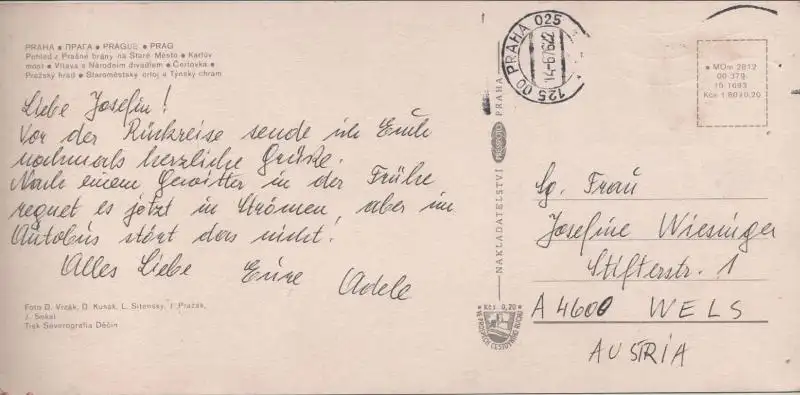 PRAHA • ПРАГА • PRAGUE • PRAG
Pohled z Prašné brány na Staré Město • Karlův
most • Vltava s Národním divadlem • Čertovka •
Pražský hrad • Staroměstský orloj a Týnský chrám
Liebe Josefin!
Vor der Rückreise sende ich Euch
nochmals herzliche Grüße.
Nach einem Gewitter in der Frühe
regnet es jetzt in Strömen, aber im
Autobus stört das nicht!
Alles Liebe Eure Adele
Foto D. Vizák, D. Kusák, L. Sitenský, J. Pražák,
J. Sokal
Tisk Severografia Děčín
NAKLADATELSTVÍ PRESSFOTO PRAHA
• Kčs 0,20 •
VE PROSPĚCH CESTOVNÍHO RUCHU
125 00 PRAHA 025
• MOm 2812
00 379
15 1693
Kčs 1,80 + 0,20
Sg. Frau
Josefine Wiesinger
Stifterstr. 1
A 4600 WELS
AUSTRIA